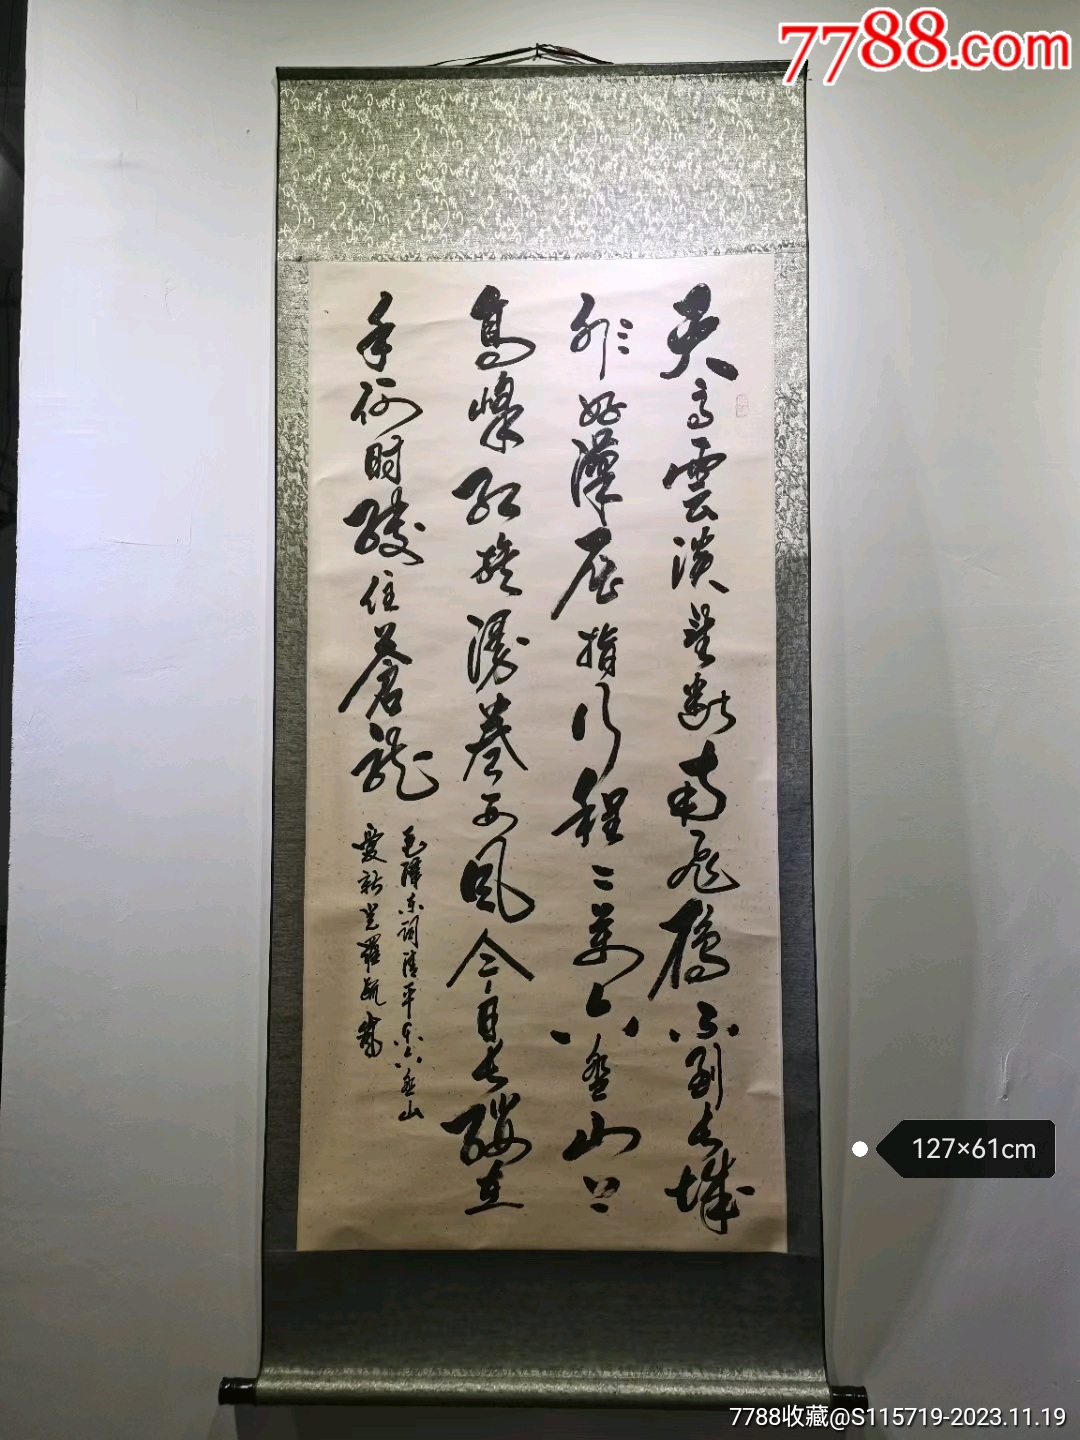 7788.com
天高雲淡望斷南飛雁不到长城
非好漢屈指行程二萬六盘山上
高峰红旗漫卷西风今日长缨在
手何时缚住蒼龙
毛泽东词清平乐六盘山
愛新觉羅毓
127×61cm
7788收藏@S115719-2023.11.19